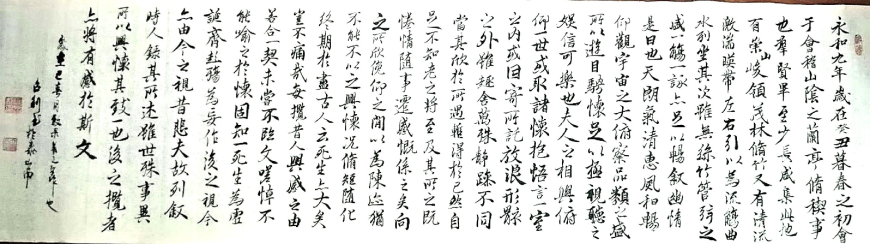 永和九年歲在癸丑暮春之初會
于會稽山陰之蘭亭脩稧事
也羣賢畢至少長咸集此地
有崇山峻領茂林脩竹又有清流
激湍暎帶左右引以為流觴曲
水列坐其次雖無絲竹管弦之
盛一觴一詠亦足以暢敘幽情
是日也天朗氣清惠風和暢
仰觀宇宙之大俯察品類之盛
所以遊目騁懷足以極視聽之
娛信可樂也夫人之相與俯
仰一世或取諸懷抱悟言一室
之內或因寄所託放浪形骸
之外雖趣舍萬殊靜躁不同
當其欣於所遇暫得於己然自
足不知老之將至及其所之既
惓情隨事遷感慨係之矣向
之所欣俛仰之間以為陳迹猶
不能不以之興懷況脩短隨化
終期於盡古人云死生亦大矣
豈不痛哉每攬昔人興感之由
若合一契未嘗不臨文嗟悼不
能喻之於懷固知一死生為虛
誕齊彭殤為妄作後之視今
亦由今之視昔悲夫故列敘
時人錄其所述雖世殊事異
所以興懷其致一也後之攬者
亦將有感於斯文